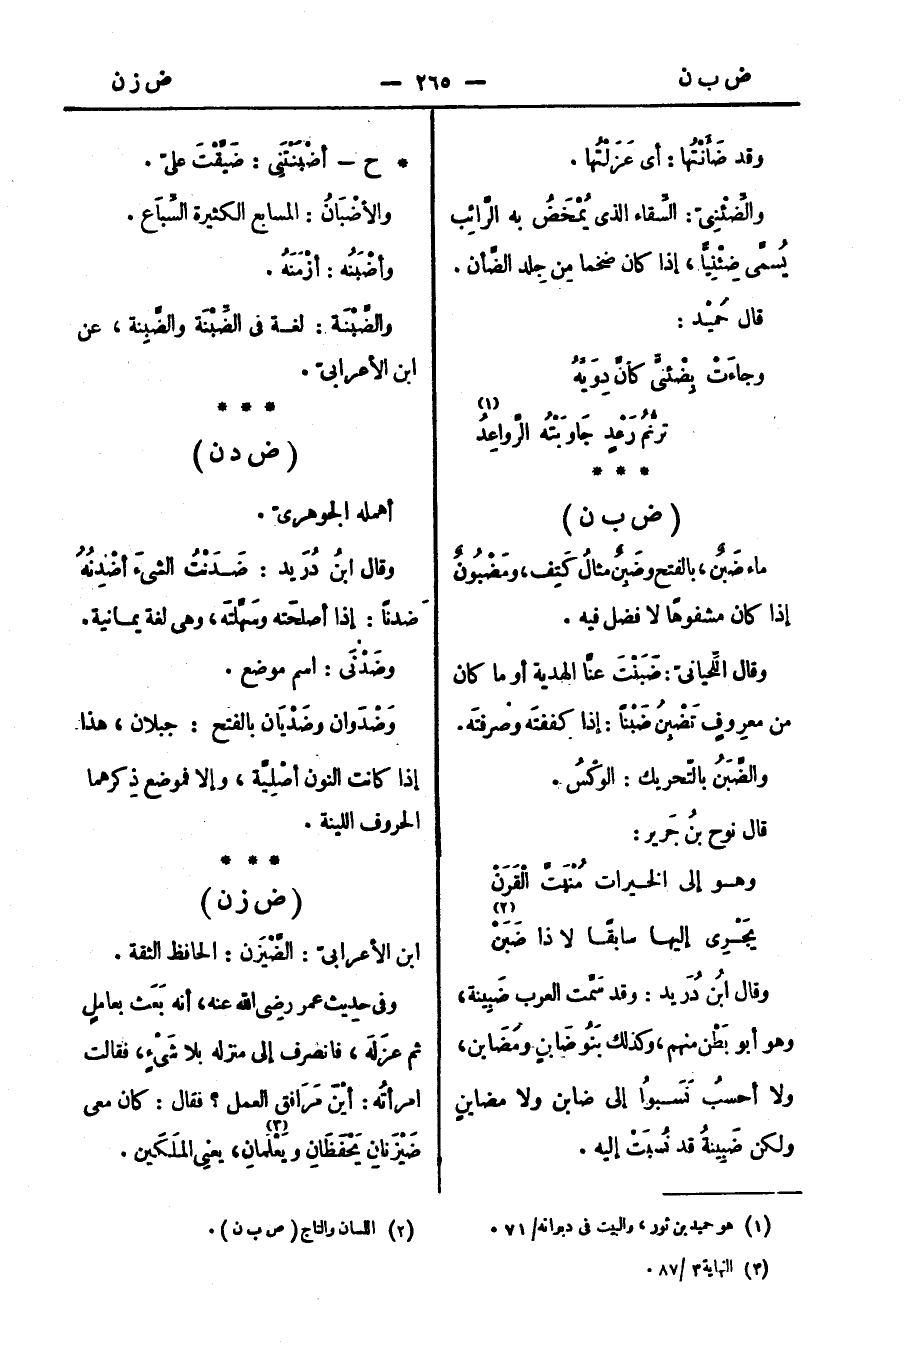 ض ب ن
— ٢٦٥ —
ض ز ن
وقد ضَأَنْتُها : أى عَزَلْتُها .
والضِّئْنِىّ : السِّقاء الذى يُمْخَضُ به الرّائِب
يُسمَّى ضِئْنِيًّا ، إذا كان ضخما مِن جِلد الضَّأن .
قال حُمَيْد :
وجاءَتْ بِضْئنىٍّ كأنَّ دوِيَّهُ
ترنُّمُ رَعْدٍ جَاوبَتْهُ الرَّواعِدُ (١)
* * *
( ض ب ن )
ماء ضَبْنٌ ، بالفتح وضَبِنٌ مثالُ كَتِف ، ومَضْبُونٌ
إذا كان مشفوهًا لا فضل فيه .
وقال اللِّحيانىّ : ضَبَنْتَ عنَّا الهدية أو ما كان
من معروفٍ تَضْبِنُ ضَبْناً : إذا كففته وصرفته .
والضَّبَنُ بالتّحريك : الوكْسُ .
قال نوح بنُ جَرير :
وهـو إلى الخـيرات مُنْهَتَّ الْقَرَنْ
يَجْـرِى إليهـا سابقًـا لا ذا ضَبَنْ (٢)
وقال ابنُ دُرَيد : وقد سَمَّت العرب ضَبِينة ،
وهو أبو بَطْن منهم ، وكذلك بَنُو ضَابِنٍ ومُضَابن ،
ولا أحسبُ نَسَبوُا إلى ضابن ولا مضابنٍ
ولكن ضَبِينةُ قد نُسبَتْ إليه .
* ح — أضْبَنْتَنِى : ضَيَّقْتَ علىّ .
والأضْبَانُ : المسابع الكثيرة السِّبَاع .
وأضْبَنَه : أزْمَنَهُ .
والضَّبْنَة : لغـة فى الضِّبْنَة والضَّبِنة ، عن
ابن الأعرابىّ .
* * *
( ض د ن )
أهمله الجوهرىّ .
وقال ابنُ دُرَيد : ضَـدَنْتُ الشىءَ أضْدِنُهُ
ضَدنًا : إذا أصلحته وسَهَّلته ، وهى لغة يمـانية .
وضَدْنَى : اسم موضع .
وضَدْوان وضَدْيَان بالفتح : جبلان ، هذا
إذا كانت النون أصْلِيَّة ، وإلا فموضع ذِكرهما
الحروف اللينة .
* * *
( ض ز ن )
ابن الأعرابىّ : الضَّيْزَن : الحافظ الثقة .
وفى حديث عمر رضى الله عنه ، أنه بَعَث بعاملٍ
ثم عزَلَه ، فانصرف إلى منزله بلا شَىْءٍ ، فقالت
امرأتُه : أيْنَ مَرَافق العمل ؟ فقال : كان معى
ضَيْزَنانِ يَحْفَظَانِ ويَعْلمانِ ، يعنِى المَلَكَين . (٣)
(١) هو حميد بن ثور ، والبيت فى ديوانه/ ٧١ .
(٢) اللسان والتاج ( ص ب ن ) .
(٣) النهاية ٣ /٨٧ .